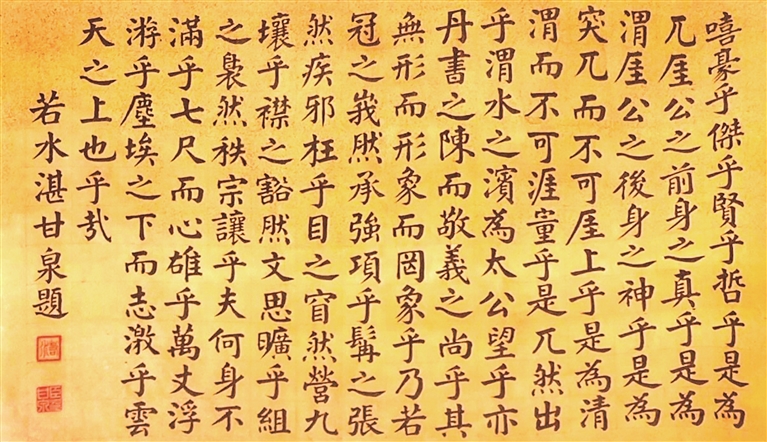 嘻豪乎傑乎賢乎哲乎是為
兀厓公之前身之真乎是為
渭厓公之後身之神乎是為
突兀而不可厓上乎是為清
渭而不可涯量乎是兀然出
乎渭水之濱為太公望乎亦
丹書之陳而敬義之尚乎其
無形而形象而罔象乎乃若
冠之峩然承強項乎髯之張
然疾邪枉乎目之窅然營九
壤乎襟之豁然文思曠乎組
之裊然秩宗讓乎夫何身不
滿乎七尺而心雄乎萬丈浮
游乎塵埃之下而志激乎雲
天之上也乎哉
若水湛甘泉題